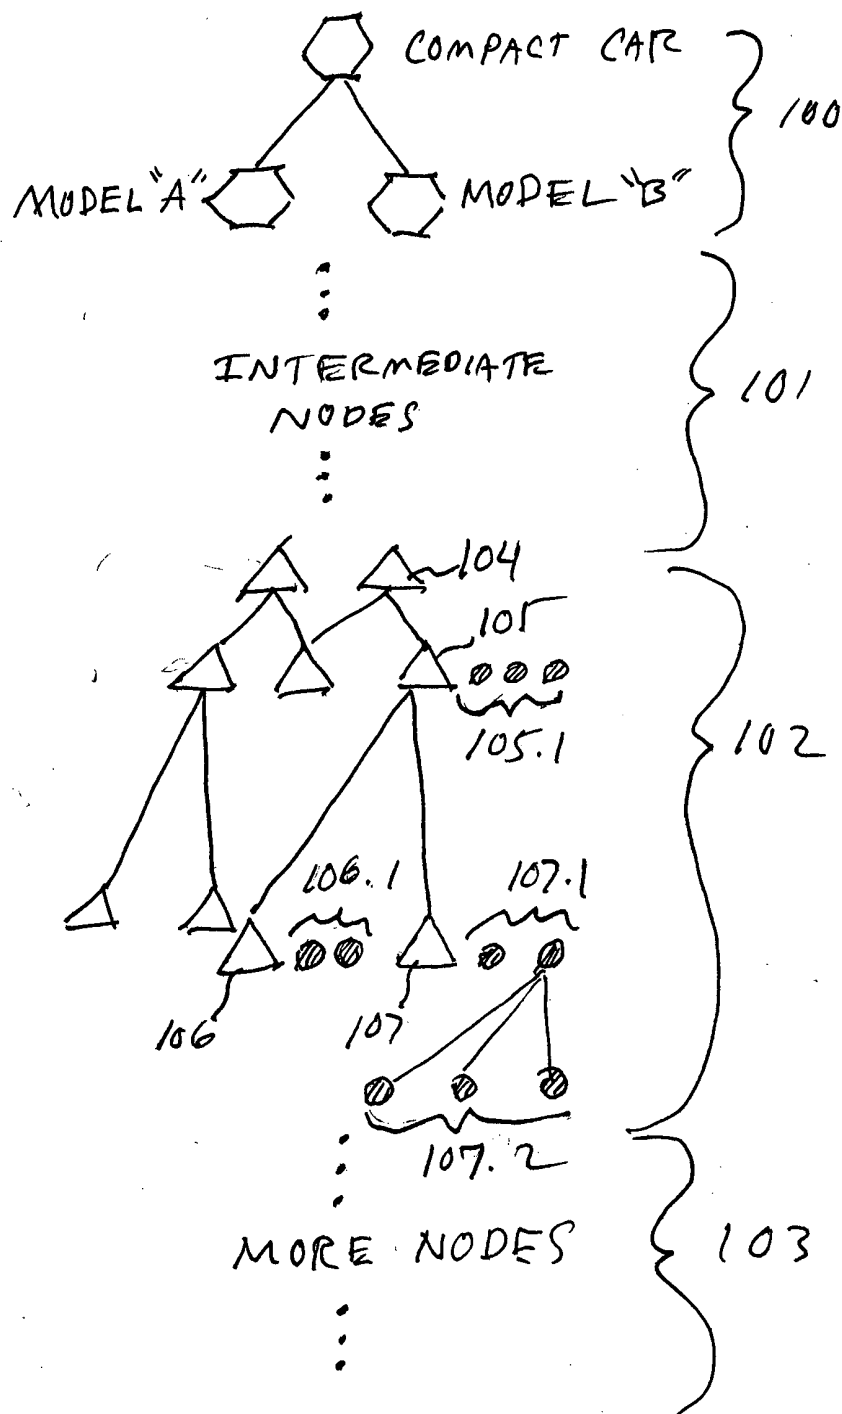 COMPACT CAR
100
MODEL "A"
MODEL "B"
INTERMEDIATE
NODES
101
104
105
105.1
102
106.1
107.1
106
107
107.2
MORE NODES
103